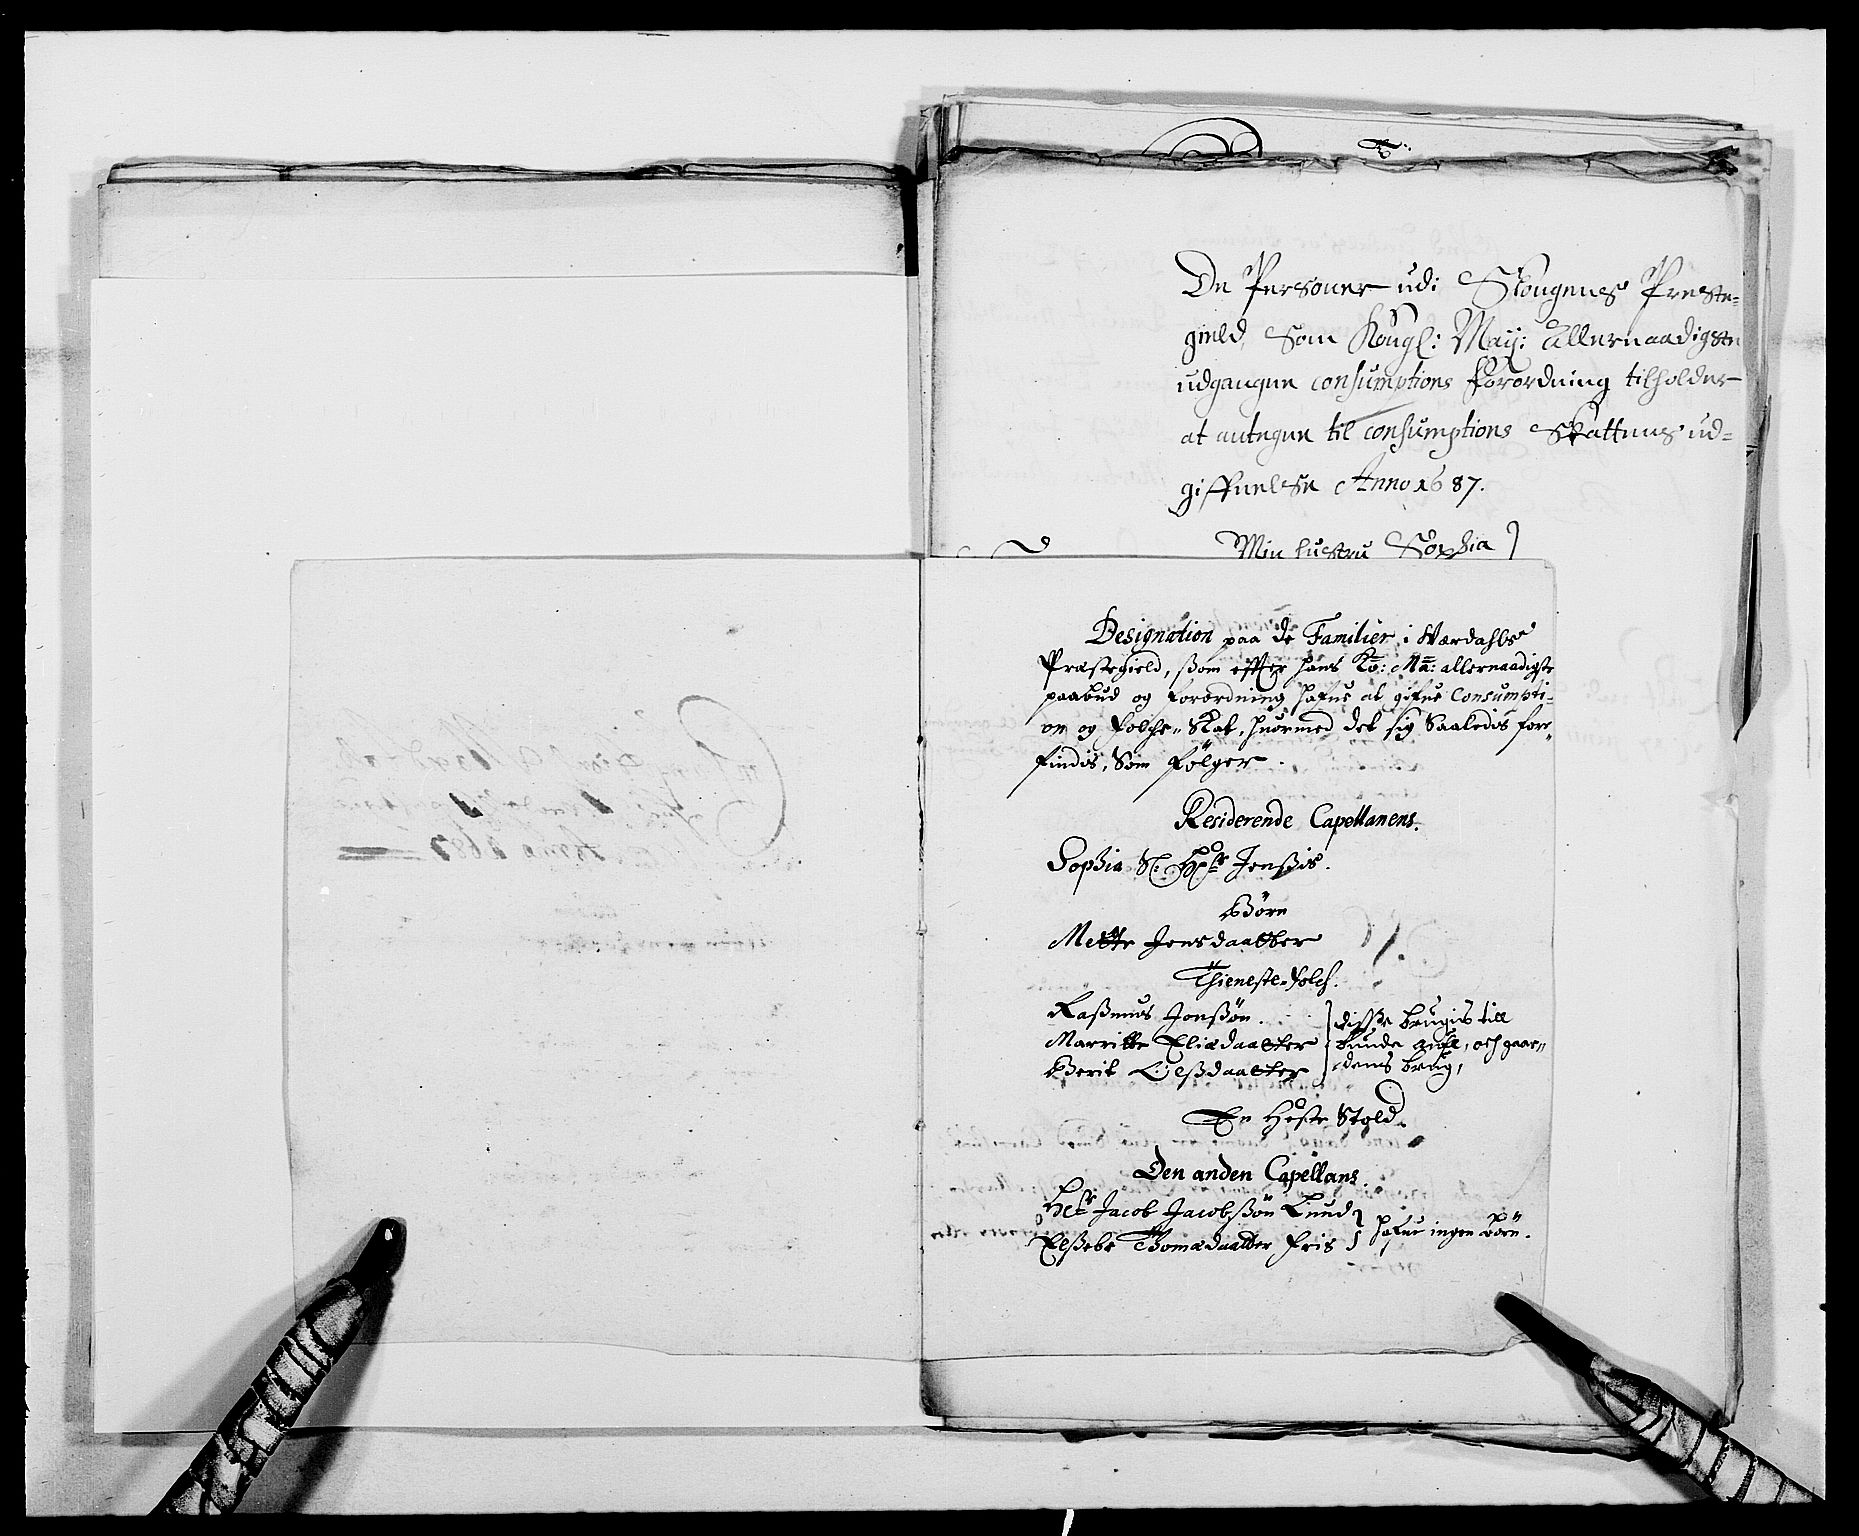 De Personer udi Skougens Preste=
gield, Som Kongl: May: allernaadigste
udgangne consumptions forordning tilholder
at antegne til consumptions Skattens ud=
giffuelse Anno 1687.
Min hustru Sophia
Designation paa de Familier i Værdahls
Præstegield, ßom efter hans Ko: Ma: allernaadigste
paabud og forordning hafue at gifue Consumpti-
on og folche-Skat, huormed det sig Saaledis for-
findis, Som følger.
Residerende Capellanens.
Sophia Sl: Hr Jenßis.
Børn
Mette Jensdaatter
Thieneste-folch.
Raßmus Jonßøn.
Marritte Eliædaatter
Berit Olßdaatter
diße brugis till
bunde aufl, och gaar-
dens brug,
En Heste Stold.
Den anden Capellans.
Hr Jacob Jacobßøn Lund
Elßebe Thomædaatter friis
hafue ingen børn.